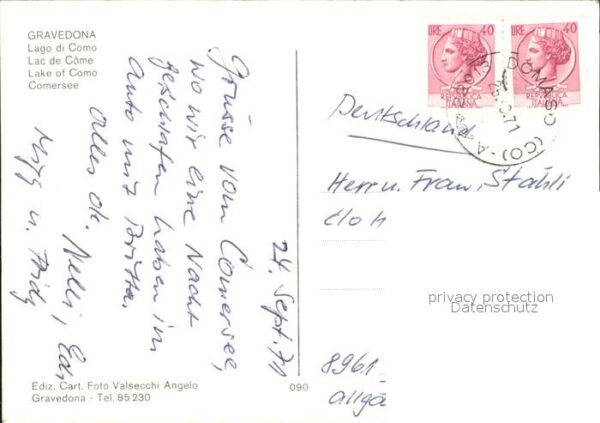 GRAVEDONA
Lago di Como
Lac de Côme
Lake of Como
Comersee
24. Sept. 71
Grüsse vom Comersee,
wo wir eine Nacht
geschlafen haben im
Auto mit Britta.
Alles ok. Nelli, Edi
u.
LIRE 40
REPUBBLICA
ITALIANA
LIRE 40
REPUBBLICA
ITALIANA
DOMASO (CO) - A
9.71
Deutschland
Herr u. Frau, Stähli
c/o H
privacy protection
Datenschutz
8961
Allgä
Ediz. Cart. Foto Valsecchi Angelo
Gravedona - Tel. 85230
090